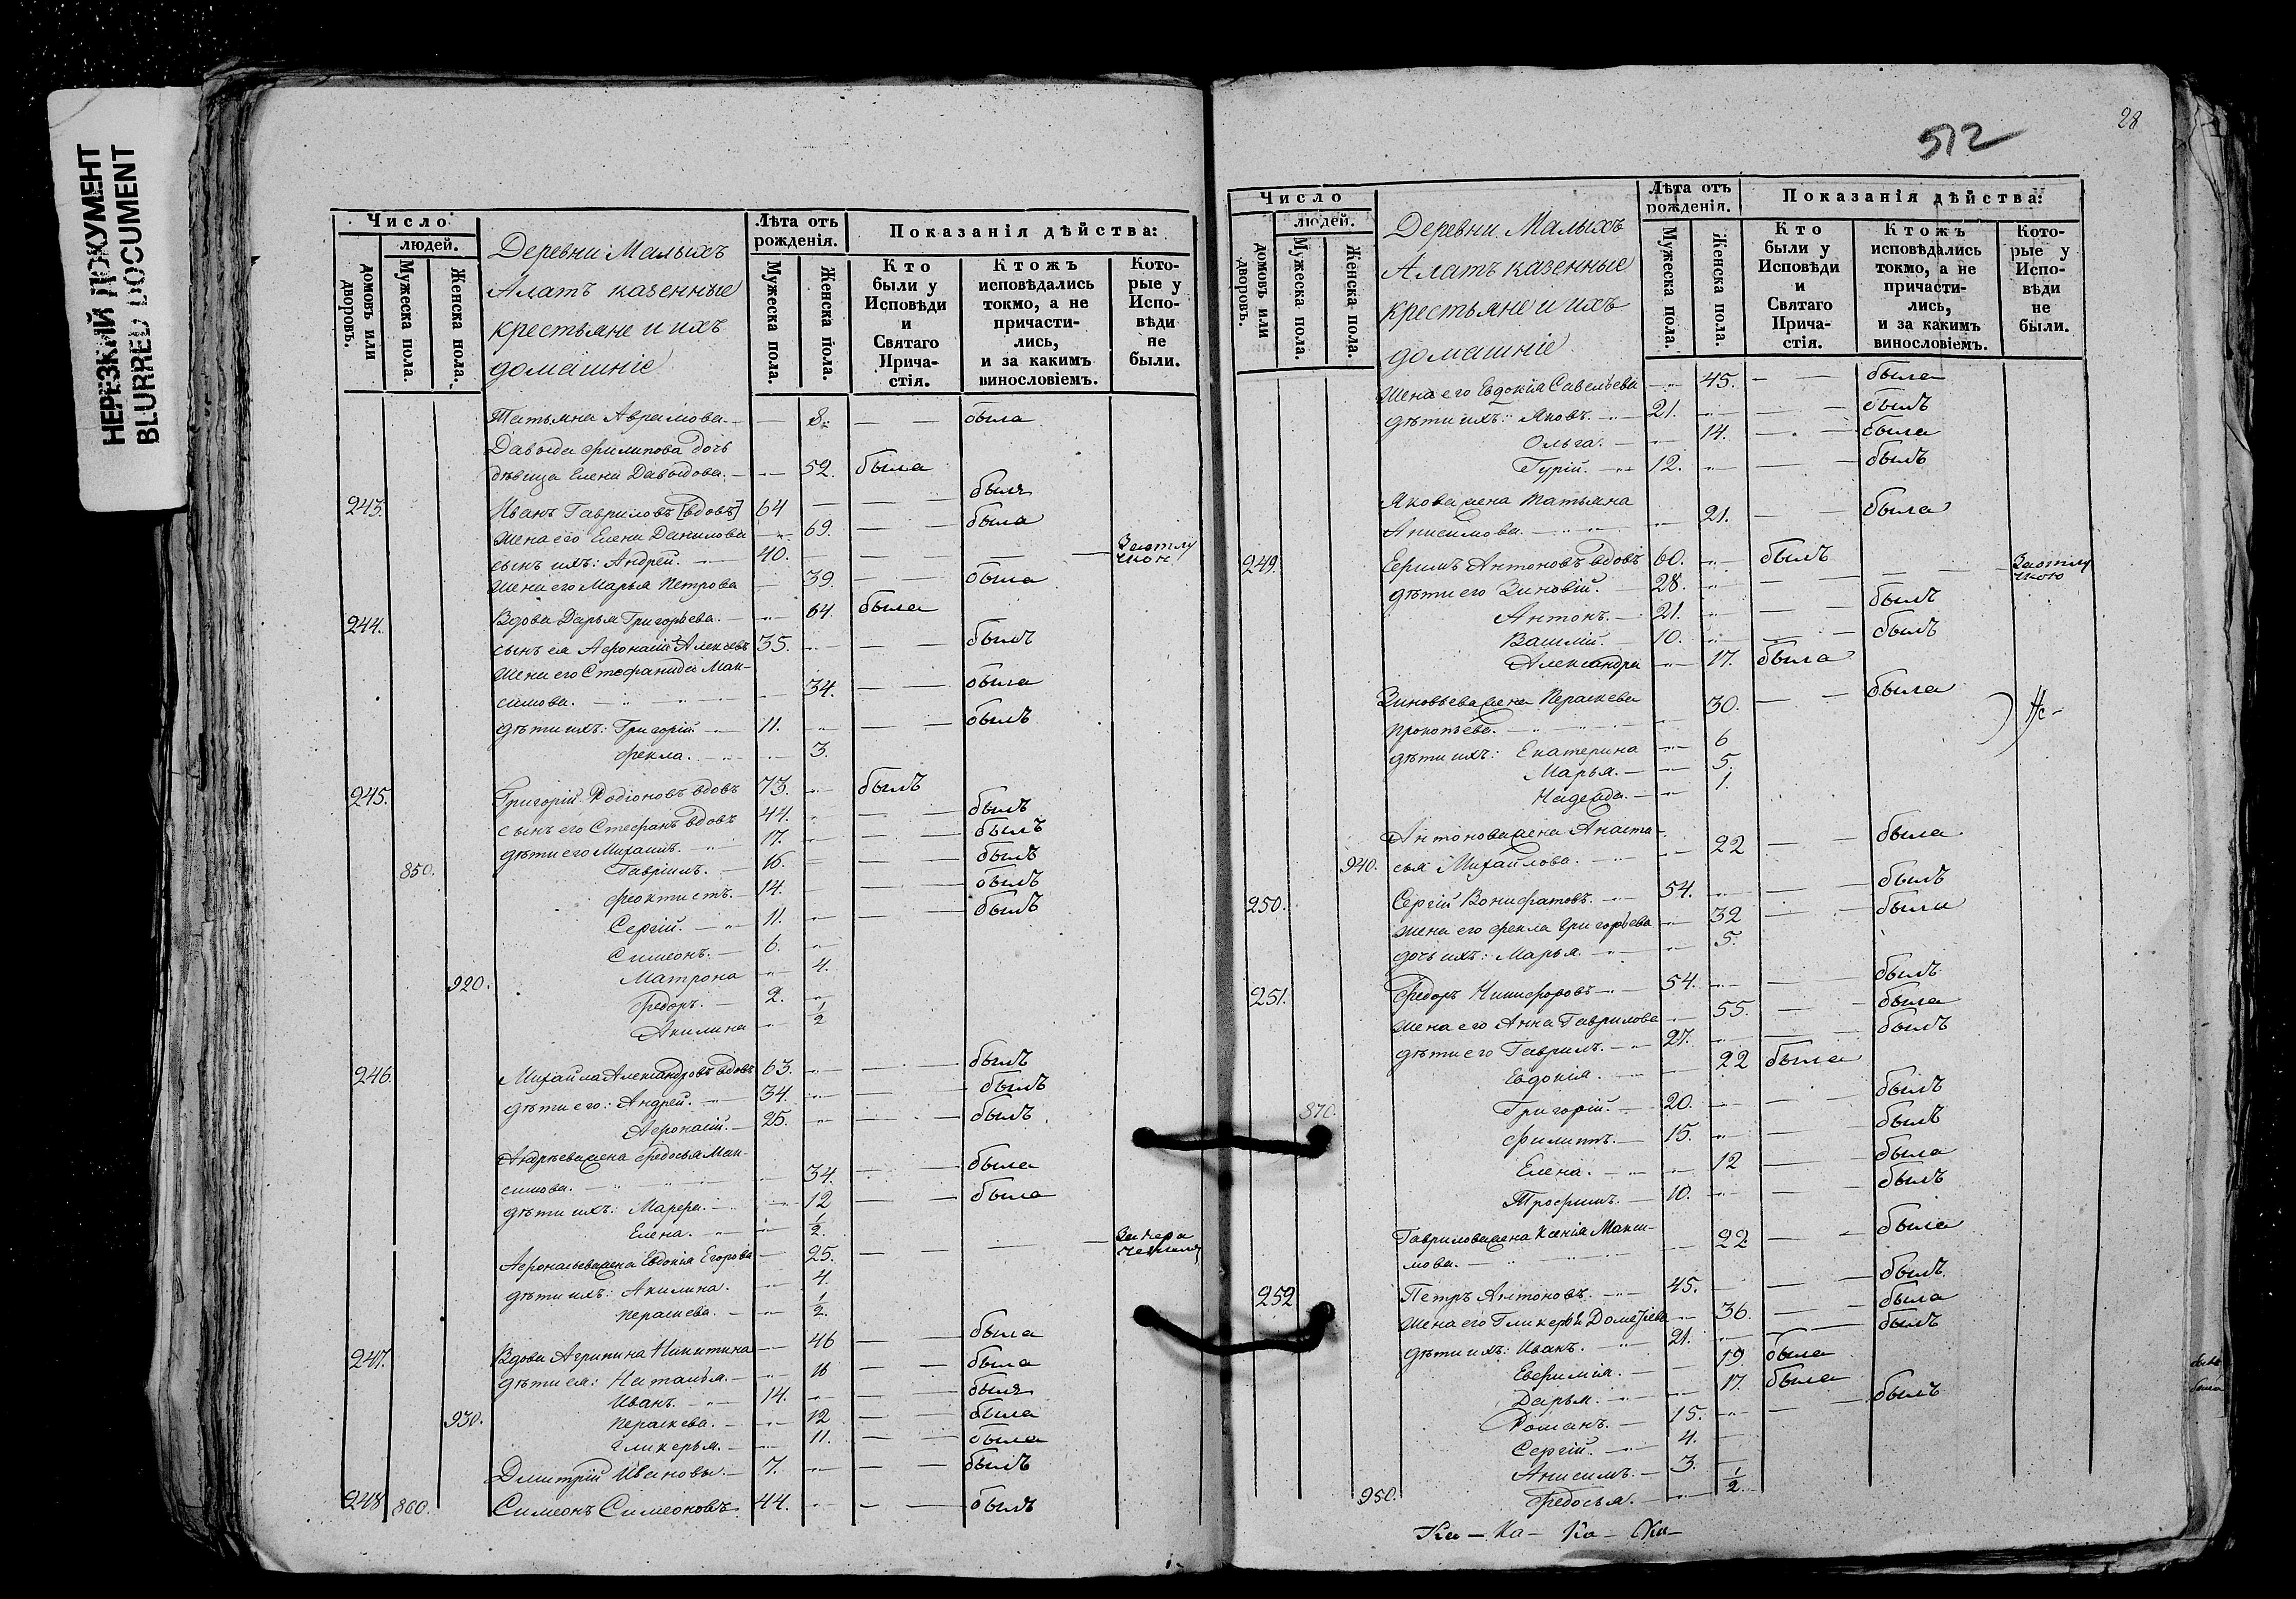 НЕРЕЗКИЙ ДОКУМЕНТ
BLURRED DOCUMENT
Число
людей.
домовъ или дворовъ.
Мужеска пола.
Женска пола.
Деревни Малыхъ
Алатъ казенные
крестьяне и ихъ
домашніе
Лѣта отъ рожденія.
Мужеска пола.
Женска пола.
Показанія дѣйства:
Кто были у Исповѣди и Святаго Прича-стія.
Ктожъ исповѣдались токмо, а не причасти-лись, и за какимъ винословіемъ.
Кото-рые у Испо-вѣди не были.
Татьяна Аврамова. 8. была
Давыда Филипова дочь
дѣвица Елена Давыдова. 52. была
243. Иванъ Гавриловъ [вдовъ] 64 былъ
жена его Елена Данилова 69. была
сынъ ихъ: Андрей. 40. За отлу
жена его Марья Петрова 39. была
244. Вдова Дарья Григорьева. 64. была
сынъ ея Афонасій Алексѣевъ 35. былъ
жена его Стефанида Мак-
симова. 34. была
дѣти ихъ: Григорій 11. былъ
Фекла. 3.
245. Григорій Родіоновъ вдовъ 73. былъ
сынъ его Стефанъ вдовъ 44. былъ
дѣти его Михаилъ. 17. былъ
850. Гавріилъ. 16. былъ
Феоктистъ. 14. былъ
Сергій. 11. былъ
Симеонъ. 6.
920. Матрона 4.
Федоръ. 2.
Акилина ½
246. Михайла Александровъ вдовъ 63. былъ
дѣти его: Андрей. 34. былъ
Афонасій. 25. былъ
Андрѣева жена Федосья Мак-
симова. 34. была
дѣти ихъ: Марфа. 12 была
Елена. ½.
Афонасьева жена Евдокія Егорова 25.
дѣти ихъ: Акилина. 4.
Параскева. ½.
247. Вдова Агрипина Никитина 46 была
дѣти ея: Наталья. 16 была
Иванъ. 14. былъ
930. Параскева. 12 была
Гликерья. 11. была
Дмитрій Ивановъ. 7. былъ
248 860. Симеонъ Симеоновъ. 44. былъ
28
512
Число
людей.
домовъ или дворовъ.
Мужеска пола.
Женска пола.
Деревни Малыхъ
Алатъ казенные
крестьяне и ихъ
домашніе
Лѣта отъ рожденія.
Мужеска пола.
Женска пола.
Показанія дѣйства:
Кто были у Исповѣди и Святаго Прича-стія.
Ктожъ исповѣдались токмо, а не причасти-лись, и за какимъ винословіемъ.
Кото-рые у Испо-вѣди не были.
Жена его Евдокія Савельева 45. была
дѣти ихъ: Яковъ. 21. былъ
Ольга. 14. была
Гурій. 12. былъ
Якова жена Татьяна
Анисимова. 21. была
249. Ефимъ Антоновъ вдовъ 60. былъ
дѣти его Зиновій. 28. За отлу
Антонъ. 21. былъ
Василій. 10. былъ
Александра 17. была
Зиновьева жена Параскева
Прокопьева. 30. была
дѣти ихъ: Екатерина 6
Марья. 5.
Надежда. 1.
Антонова жена Анаста-
940. сья Михайлова. 22 была
250. Сергій Вонифатовъ. 54. былъ
жена его Фекла Григорьева 32 была
дочь ихъ: Марья. 5.
251. Федоръ Никифоровъ 54. былъ
жена его Анна Гаврилова 55. была
дѣти его Гавріилъ. 27. былъ
Евдокія. 22 была
870. Григорій. 20. былъ
Филиппъ. 15. былъ
Елена. 12 была
Трофимъ. 10. былъ
Гаврилова жена Ксенія Макси-
мова. 22 была
252 Петръ Антоновъ. 45. былъ
жена его Гликерья 36. была
дѣти ихъ: Иванъ. 21. былъ
Евфимія. 19 была
Дарья. 17. была
Романъ. 15. былъ
Сергій. 4.
Анисимъ. 3.
950. Федосья. ½.